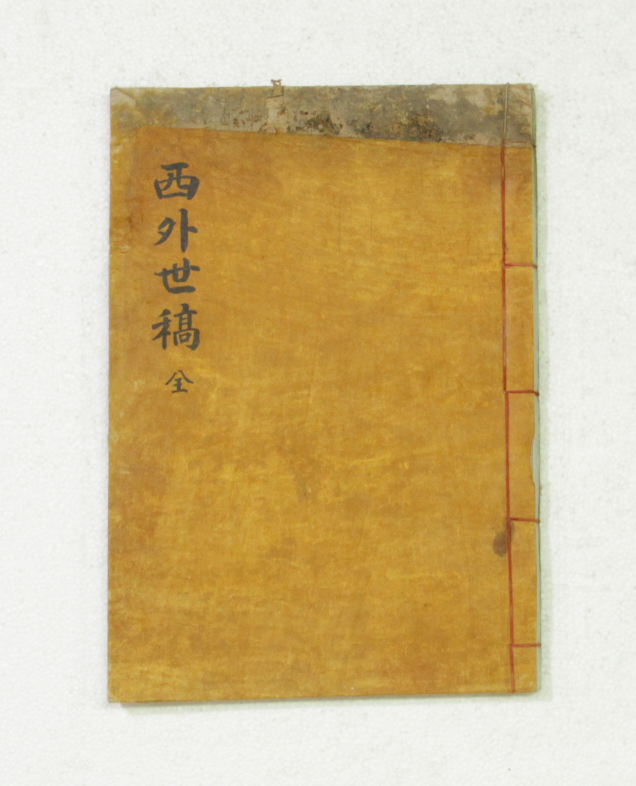 西外世稿 全